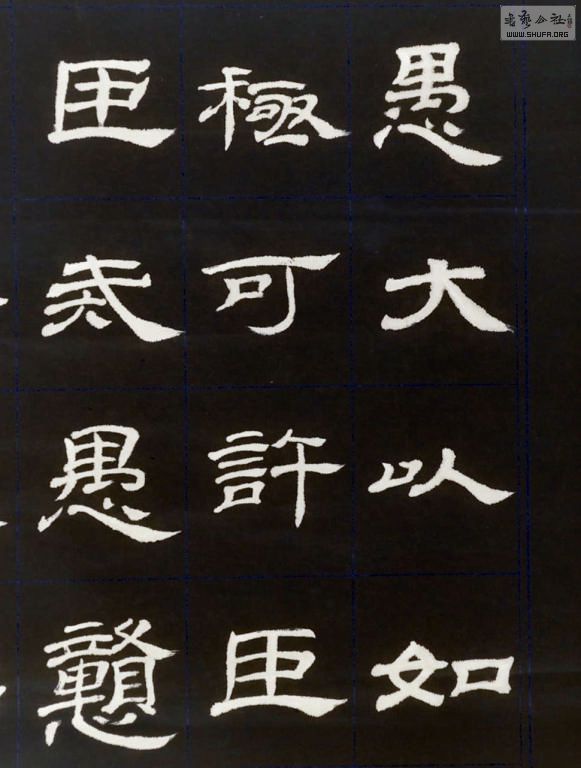 愚大以如
極可許臣
臣戒愚戇
书艺公社
WWW.SHUFA.ORG